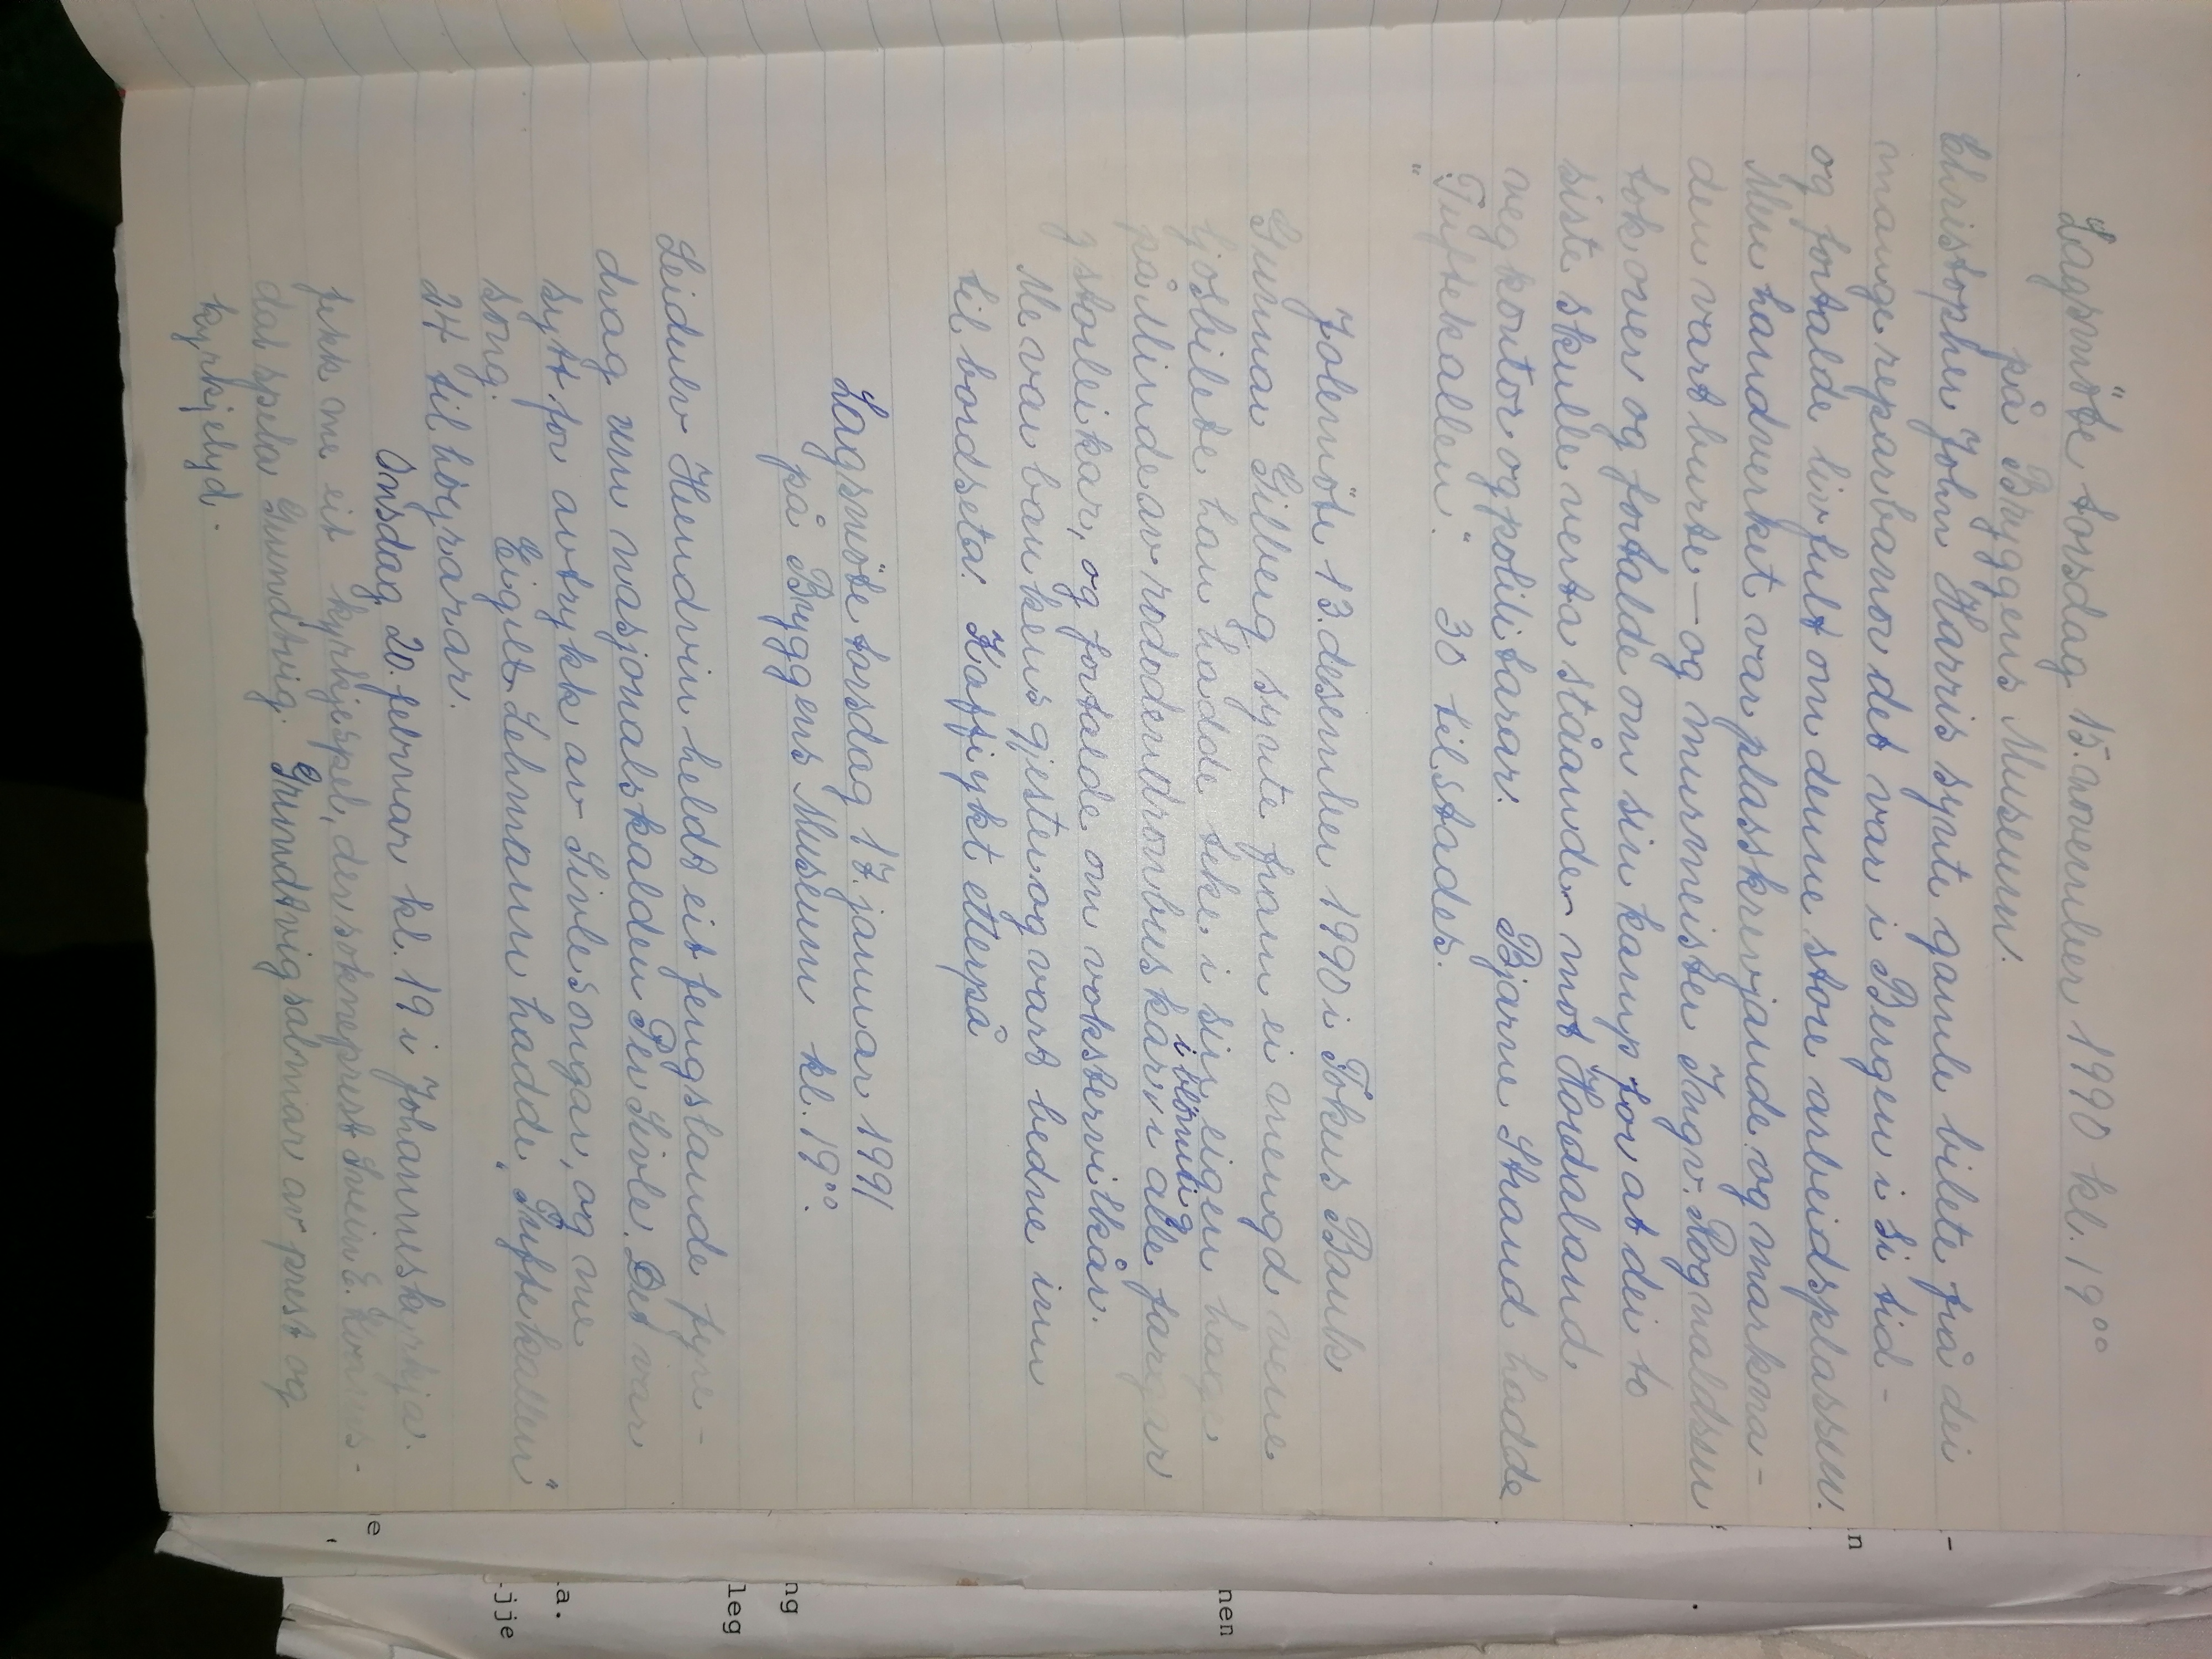 Lagsmöte torsdag 15. november 1990 kl. 19⁰⁰
på Bryggens Museum.
Christopher John Harris synte gamle bilete frå dei
mange reparbanor det var i Bergen i si tid -
og fortalde livfult om denne store arbeidsplassen.
Men handverket var plasskrevjande og markna-
den vart burte — og murmeister Ingv. Rognaldsen
tok over og fortalde om sin kamp for at dei to
siste skulle verta ståande - mot Hordaland
vegkontor og politikarar. Bjarne Strand hadde
"Tuftekallen". 30 til stades.
Jolemöte 13. desember 1990 i Fokus Bank
Gunnar Gilberg synte fram ei mengd vene
ljosbilete han hadde teke i sin eigen hage
i bløming
på Minde av rododendronbuskar i alle fargar
g storleikar, og fortalde om vokstervilkår.
Me var bankens gjester og vart bedne inn
til bordseta. Koffiykt etterpå
Lagsmöte torsdag 17. januar 1991
på Bryggens Museum kl. 19⁰⁰.
Leidulv Hundvin heldt eit fengslande fyre-
drag um nasjonalskalden Per Sivle. Det var
sytt for avtrykk av Sivlesongar, og me
song. Eigil Lehmann hadde "Tuftekallen"
24 til höyrarar.
Onsdag 20. februar kl. 19 i Johanneskyrkja.
fekk me eit kyrkjespel, der sokneprest Svein E.
dal spela Grundtvig. Grundtvigsalmar av prest og
kyrkjelyd.
e
jje
a.
leg
ng
nen
n